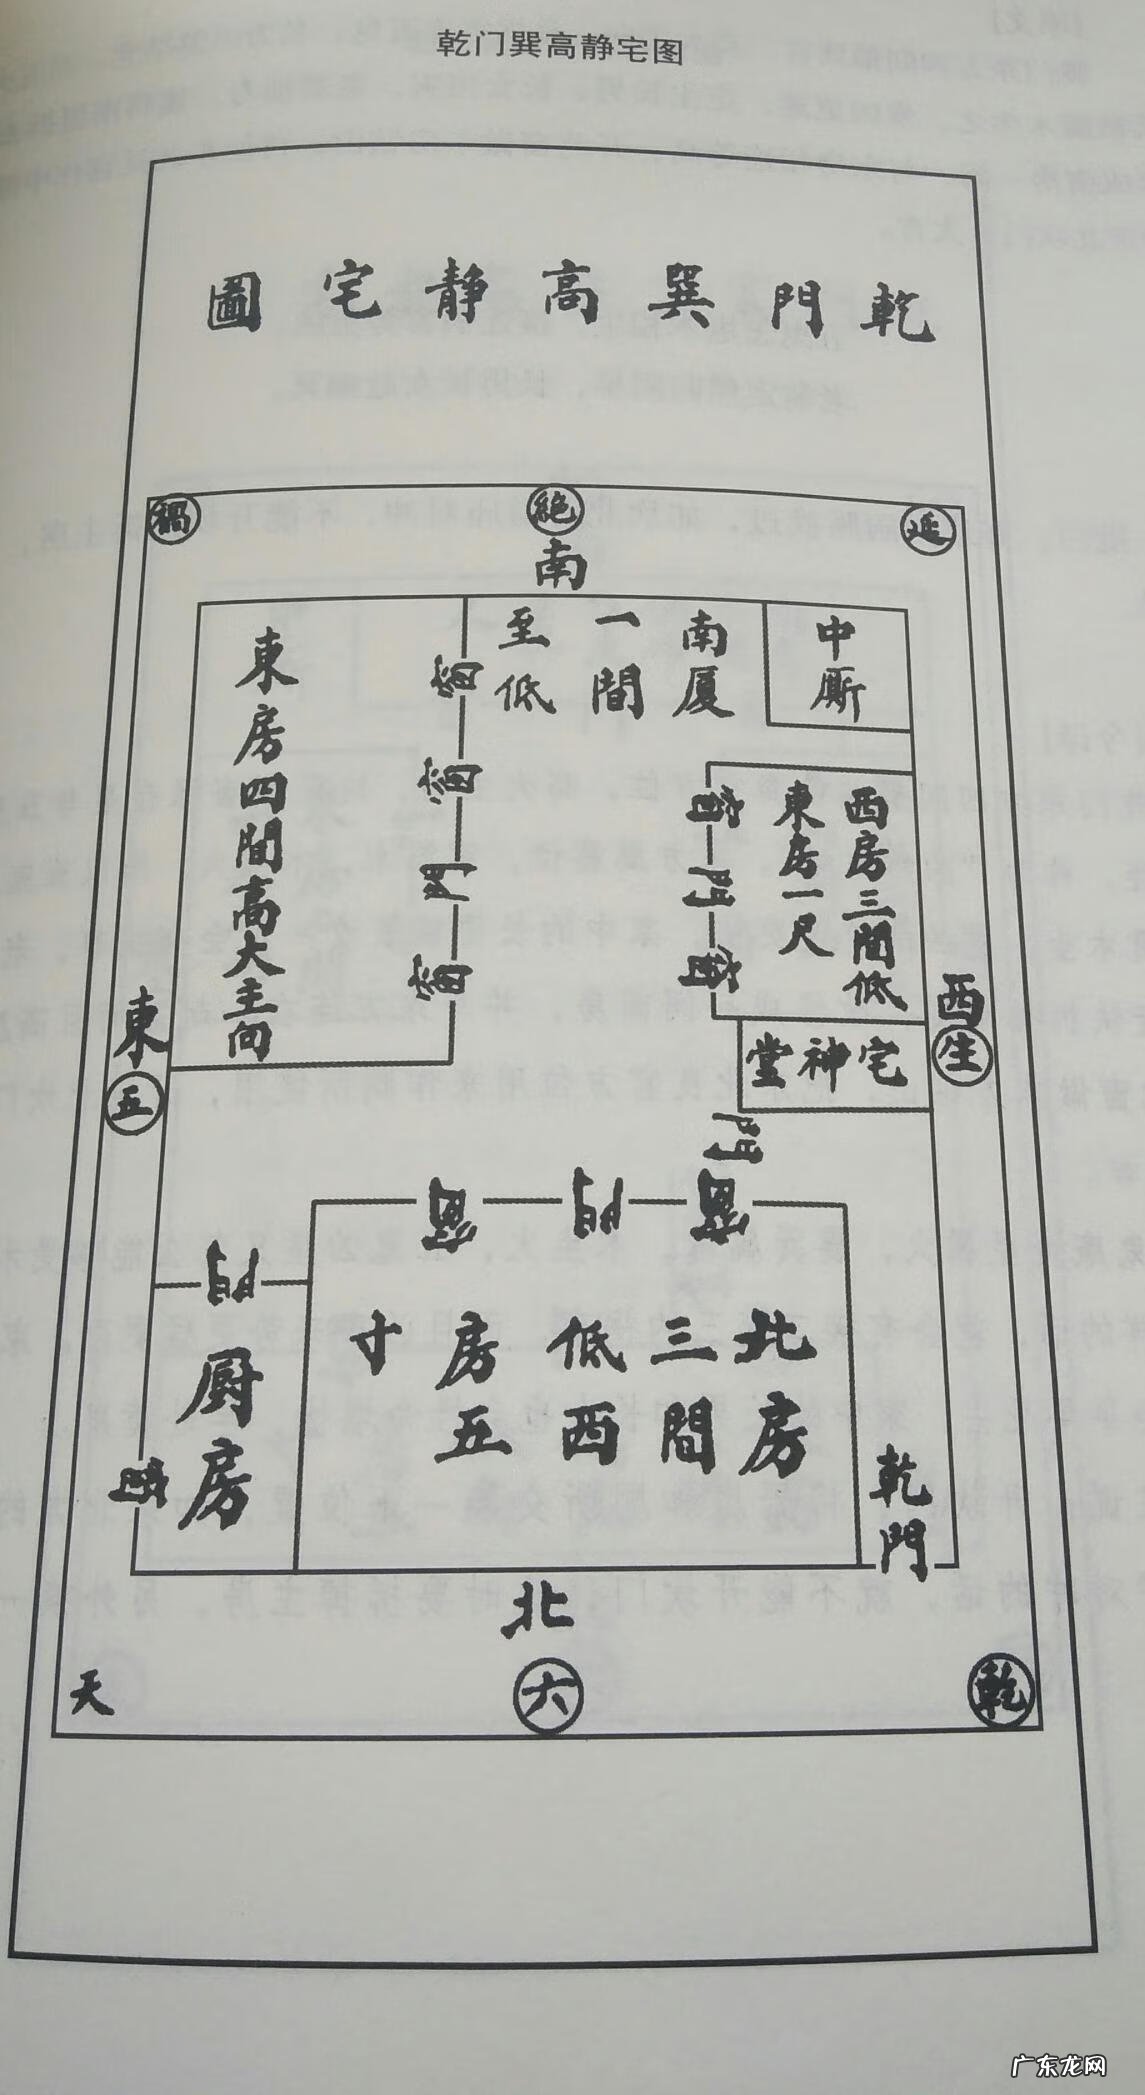 乾门巽高静宅图
乾門巽高静宅圖
禍
絶
延
南
東房四間高大主向
窗
窗
門
窗
南厦
一間
至低
中厮
窗
門
窗
西房三間低
東房一尺
宅神堂
門
東
五
西
生
窗
門
窗
門
厨房
窗
北房
三間
低西
房五
寸
乾門
北
天
六
乾
广东龙网